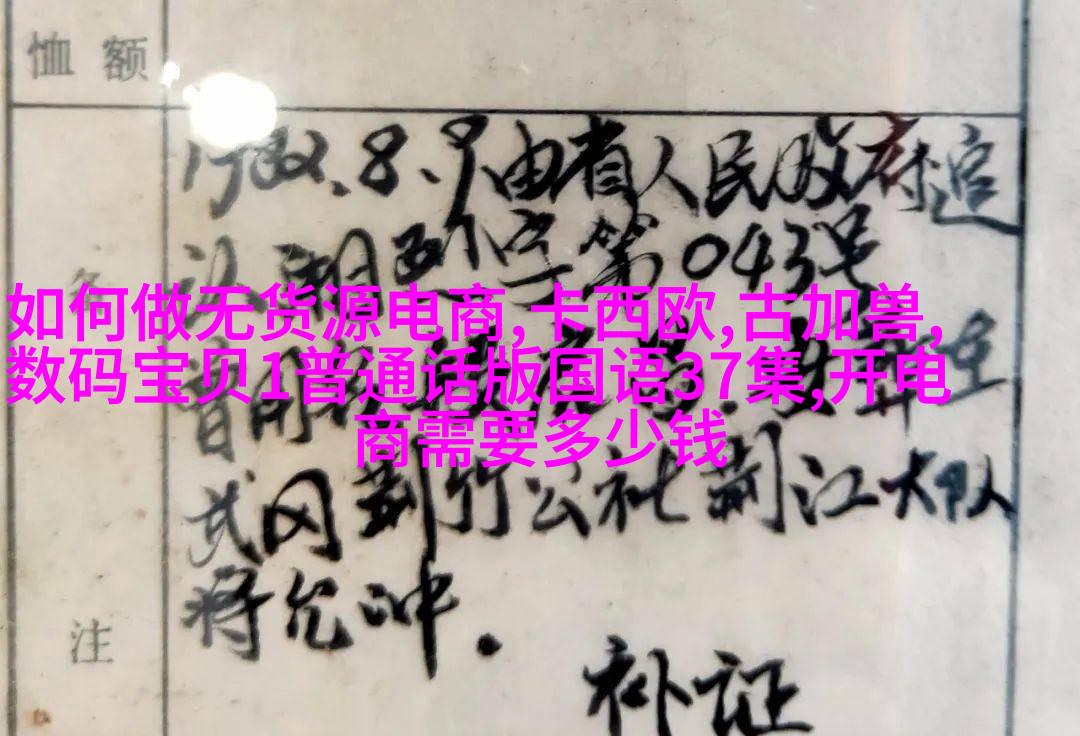 恤额
1982.8.9由省人民政府追
认,湘烈字第043号
备
如何做无货源电商,卡西欧,古加兽,
数码宝贝1普通话版国语37集,开电
商需要多少钱
武冈荆竹公社荆江大队
蒋允冲.
注
补证